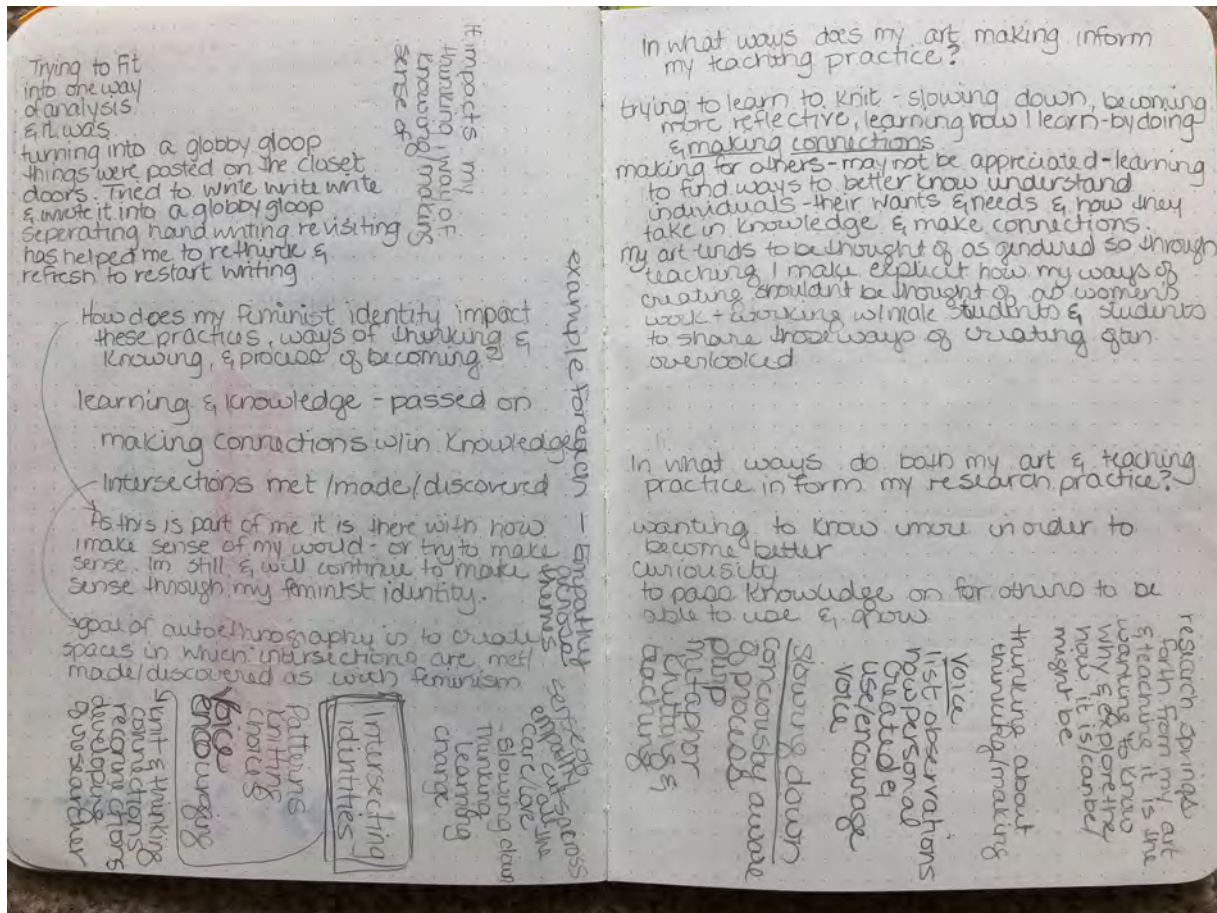 Trying to Fit
into one way
of analysis
& it was
turning into a globby gloop
things were posted on the closet
doors. Tried to write write write
& wrote it into a globby gloop
seperating hand writing revisiting
has helped me to rethink &
refresh to restart writing
It impacts my
thinking, way of
knowing/making
sense of
How does my feminist identity impact
these practices, ways of thinking &
knowing, & process of becoming?
learning & knowledge - passed on
making connections w/in knowledge
Intersections met/made/discovered
As this is part of me it is there with how
I make sense of my world - or try to make
sense. Im still & will continue to make
sense through my feminist identity.
goal of autoethnography is to create
spaces in which intersections are met/
made/discovered as with feminism
example for each - Empathy
themes
self
empathy
Care/love
Slowing down
Thinking
Learning
change
Intersecting
identities
Patterns
Knitting
choice
Voice
encouraging
Knit & thinking
connections
reconnections
developing
researcher
In what ways does my art making inform
my teaching practice?
trying to learn to knit - slowing down, becoming
more reflective, learning how I learn - by doing
& making connections
making for others - may not be appreciated - learning
to find ways to better know understand
individuals - their wants & needs & how they
take in knowledge & make connections.
my art tends to be thought of as gendured so through
teaching I make explicit how my ways of
creating shouldnt be thought of as women's
work + working w/male students & students
to share those ways of creating
overlooked
In what ways do both my art & teaching
practice inform my research practice?
wanting to know more in order to
become better
curiousity
to pass knowledge on for others to be
able to use & grow
research springs
forth from my art
& teaching it is the
wanting to know
why & explore the
how it is/can be/
might be
thinking about
thinking/making
Voice
list observations
how personal
created &
use/encourage
voice
Slowing down
conciously aware
of process
purp
metaphor
knitting &
teaching